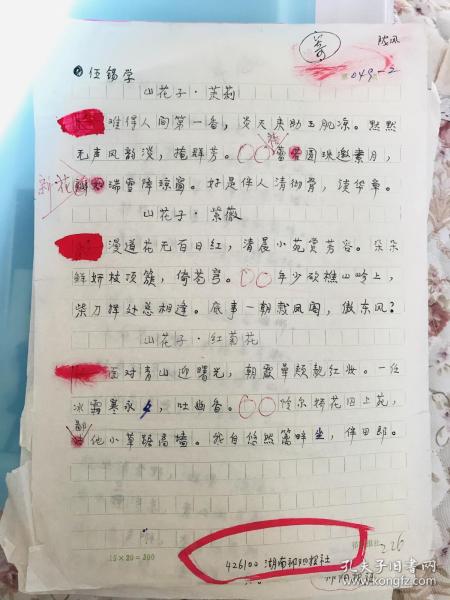 伍锡学
049-2
山花子·茉莉
难得人间第一香，炎天来助玉肌凉。默默
无声风韵淡，掩群芳。○○蕾圆珠邀素月，
瑞雪降凉窗。好是伴人清彻骨，读华章。
山花子·紫薇
漫道花无百日红，清晨小苑赏芳容。朵朵
鲜妍枝顶簇，倚苍穹。○○年少砍樵山岭上，
柴刀挥处总相逢。底事一朝栽凤阁，傲东风？
山花子·红菊花
面对青山迎曙光，朝霞晕颊靓红妆。一任
冰霜寒永，吐幽香。○○怜尔移花旧上苑，
他小草踞高墙。我自悠然篱畔坐，伴田郎。
15×20=300
226
426100 湖南祁阳报社
孔夫子旧书网